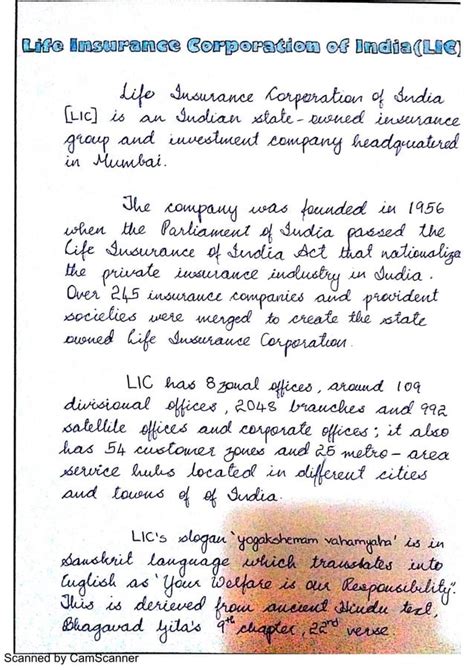 Life Insurance Corporation of India (LIC)
Life Insurance Corporation of India
[LIC] is an Indian state-owned insurance
group and investment company headquatered
in Mumbai.
The company was founded in 1956
when the Parliament of India passed the
Life Insurance of India Act that nationalize
the private insurance industry in India.
Over 245 insurance companies and provident
societies were merged to create the state
owned Life Insurance Corporation.
LIC has 8 zonal offices, around 109
divisional offices, 2048 branches and 992
satellite offices and corporate offices; it also
has 54 customer zones and 25 metro-area
service hubs located in different cities
and towns of of India.
LIC's slogan 'yogakshemam vahamyaha' is in
Sanskrit language which translates into
English as 'Your Welfare is our Responsibility".
This is derieved from ancient Hindu text,
Bhagavad Gita's 9th chapter, 22nd verse.
Scanned by CamScanner